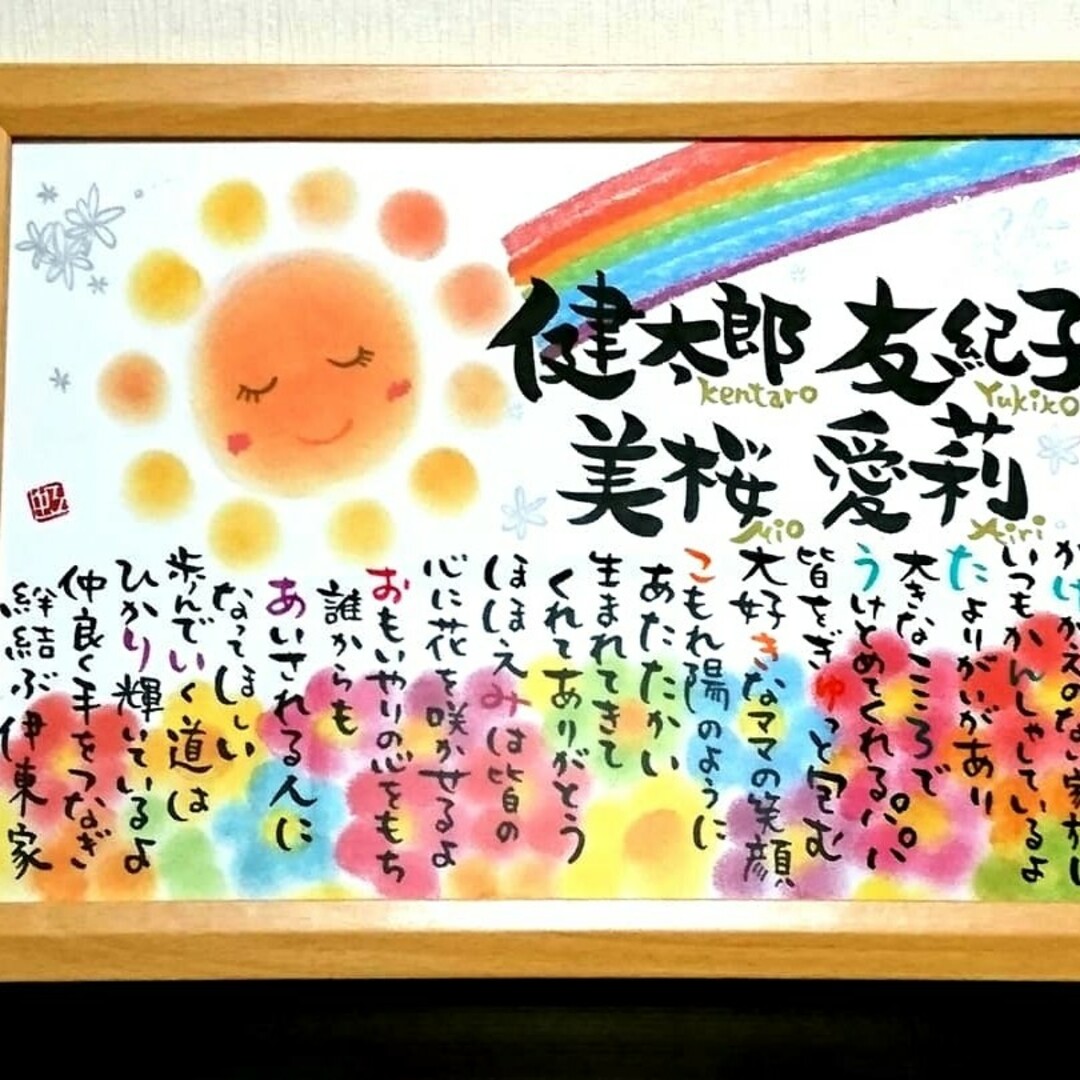 健太郎 友紀子
kentaro Yukiko
美桜 愛莉
Mio Airi
かけがえのない家族に
いつもかんしゃしているよ
たよりがいがあり
大きなこころで
うけとめてくれるパパ
皆をぎゅっと包む
大好きなママの笑顔
こもれ陽のように
あたたかい
生まれてきて
くれてありがとう
ほほえみは皆の
心に花を咲かせるよ
おもいやりの心をもち
誰からも
あいされる人に
なってほしい
歩んでいく道は
ひかり輝いているよ
仲良く手をつなぎ
絆結ぶ伊東家